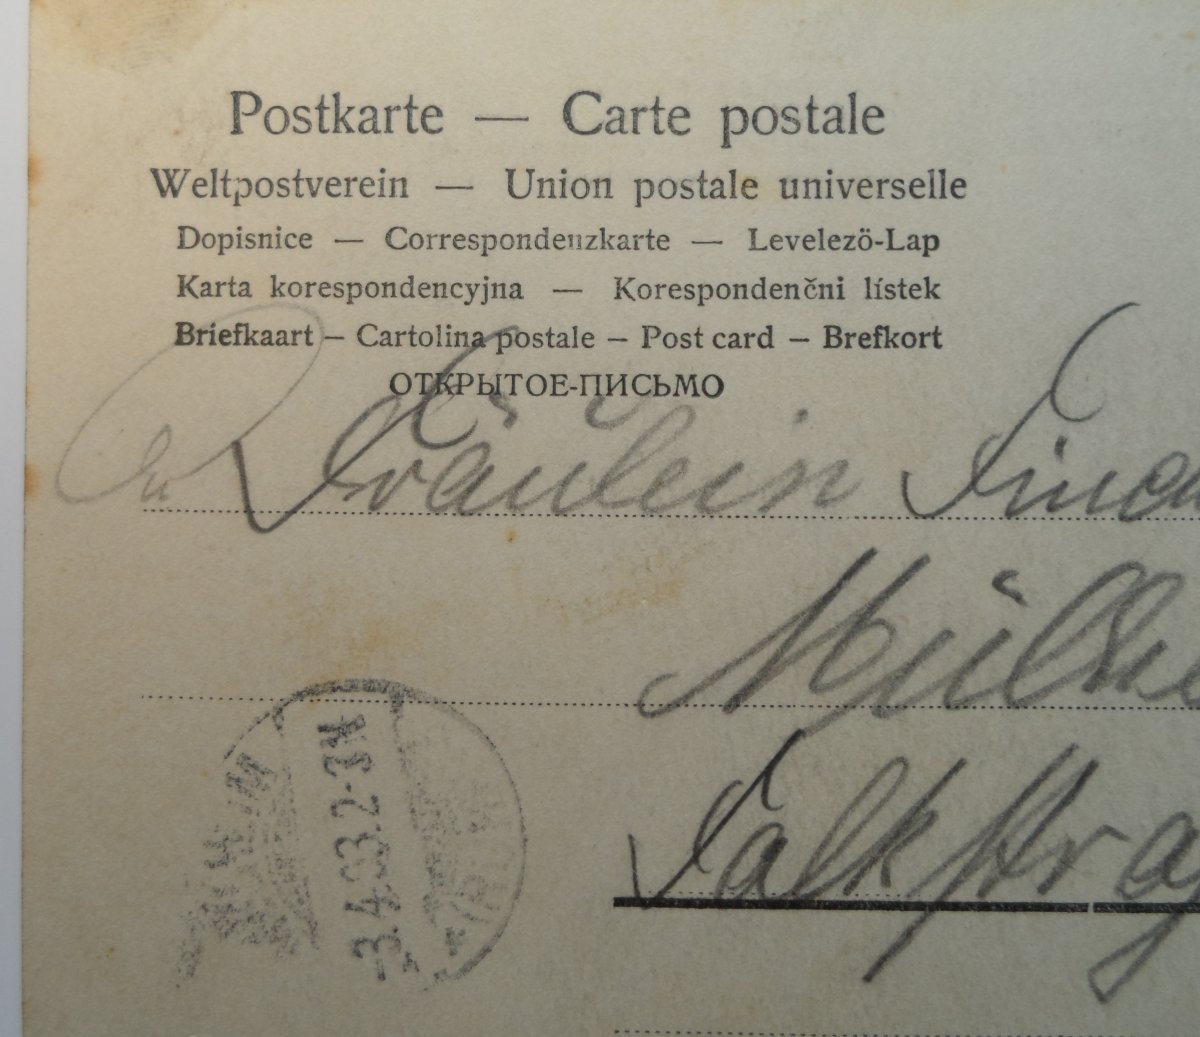 Postkarte — Carte postale
Weltpostverein — Union postale universelle
Dopisnice — Correspondenzkarte — Levelezö-Lap
Karta korespondencyjna — Korespondenčni lístek
Briefkaart — Cartolina postale — Post card — Brefkort
ОТКРЫТОЕ-ПИСЬМО
Fräulein
3.4.03.2-3N